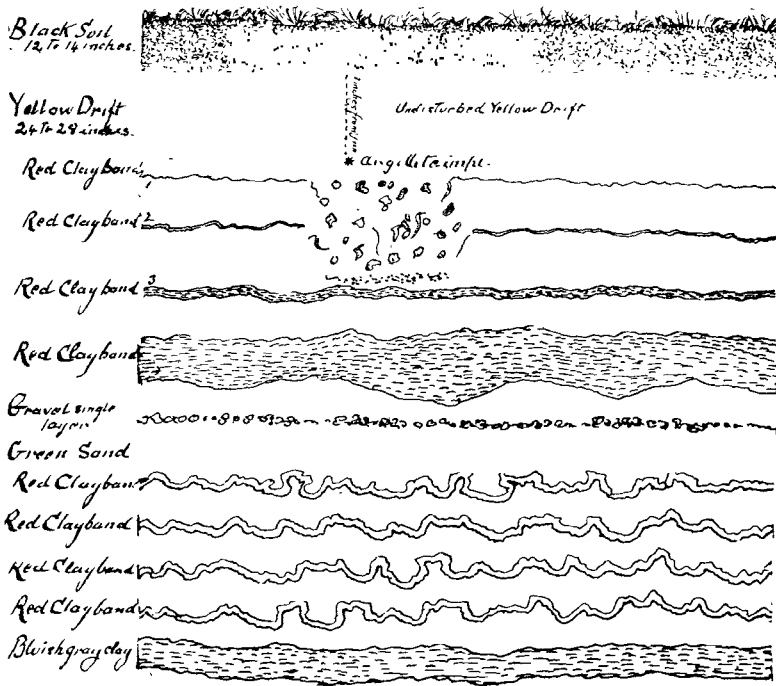 Black Soil
12 to 14 inches.
Yellow Drift
24 to 28 inches.
Undisturbed Yellow Drift
inches from
Red Clayband 1
* argillite impl.
Red Clayband 2
Red Clayband 3
Red Clayband
Gravel single
layer
Green Sand
Red Clayband
Red Clayband
Red Clayband
Red Clayband
Bluish gray clay